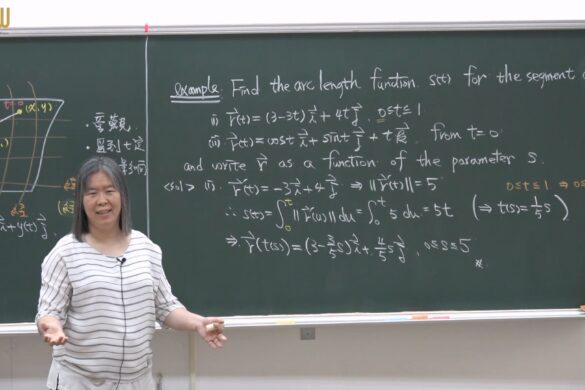 example Find the arc length function s(t) for the segment
(i) r⃗(t) = (3-3t)i⃗ + 4t j⃗, 0≤t≤1
(ii) r⃗(t) = cost i⃗ + sint j⃗ + t k⃗, from t=0.
and write r⃗ as a function of the parameter s.
<sol> (i) r⃗'(t) = -3i⃗ + 4j⃗ ⇒ ‖r⃗'(t)‖ = 5 0≤t≤1 ⇒
∴ s(t) = ∫₀ᵗ ‖r⃗'(u)‖ du = ∫₀ᵗ 5 du = 5t (⇒ t(s) = 1/5 s)
⇒ r⃗(t(s)) = (3 - 3/5 s)i⃗ + 4/5 s j⃗, 0≤s≤5
(x,y)
y(t)j⃗